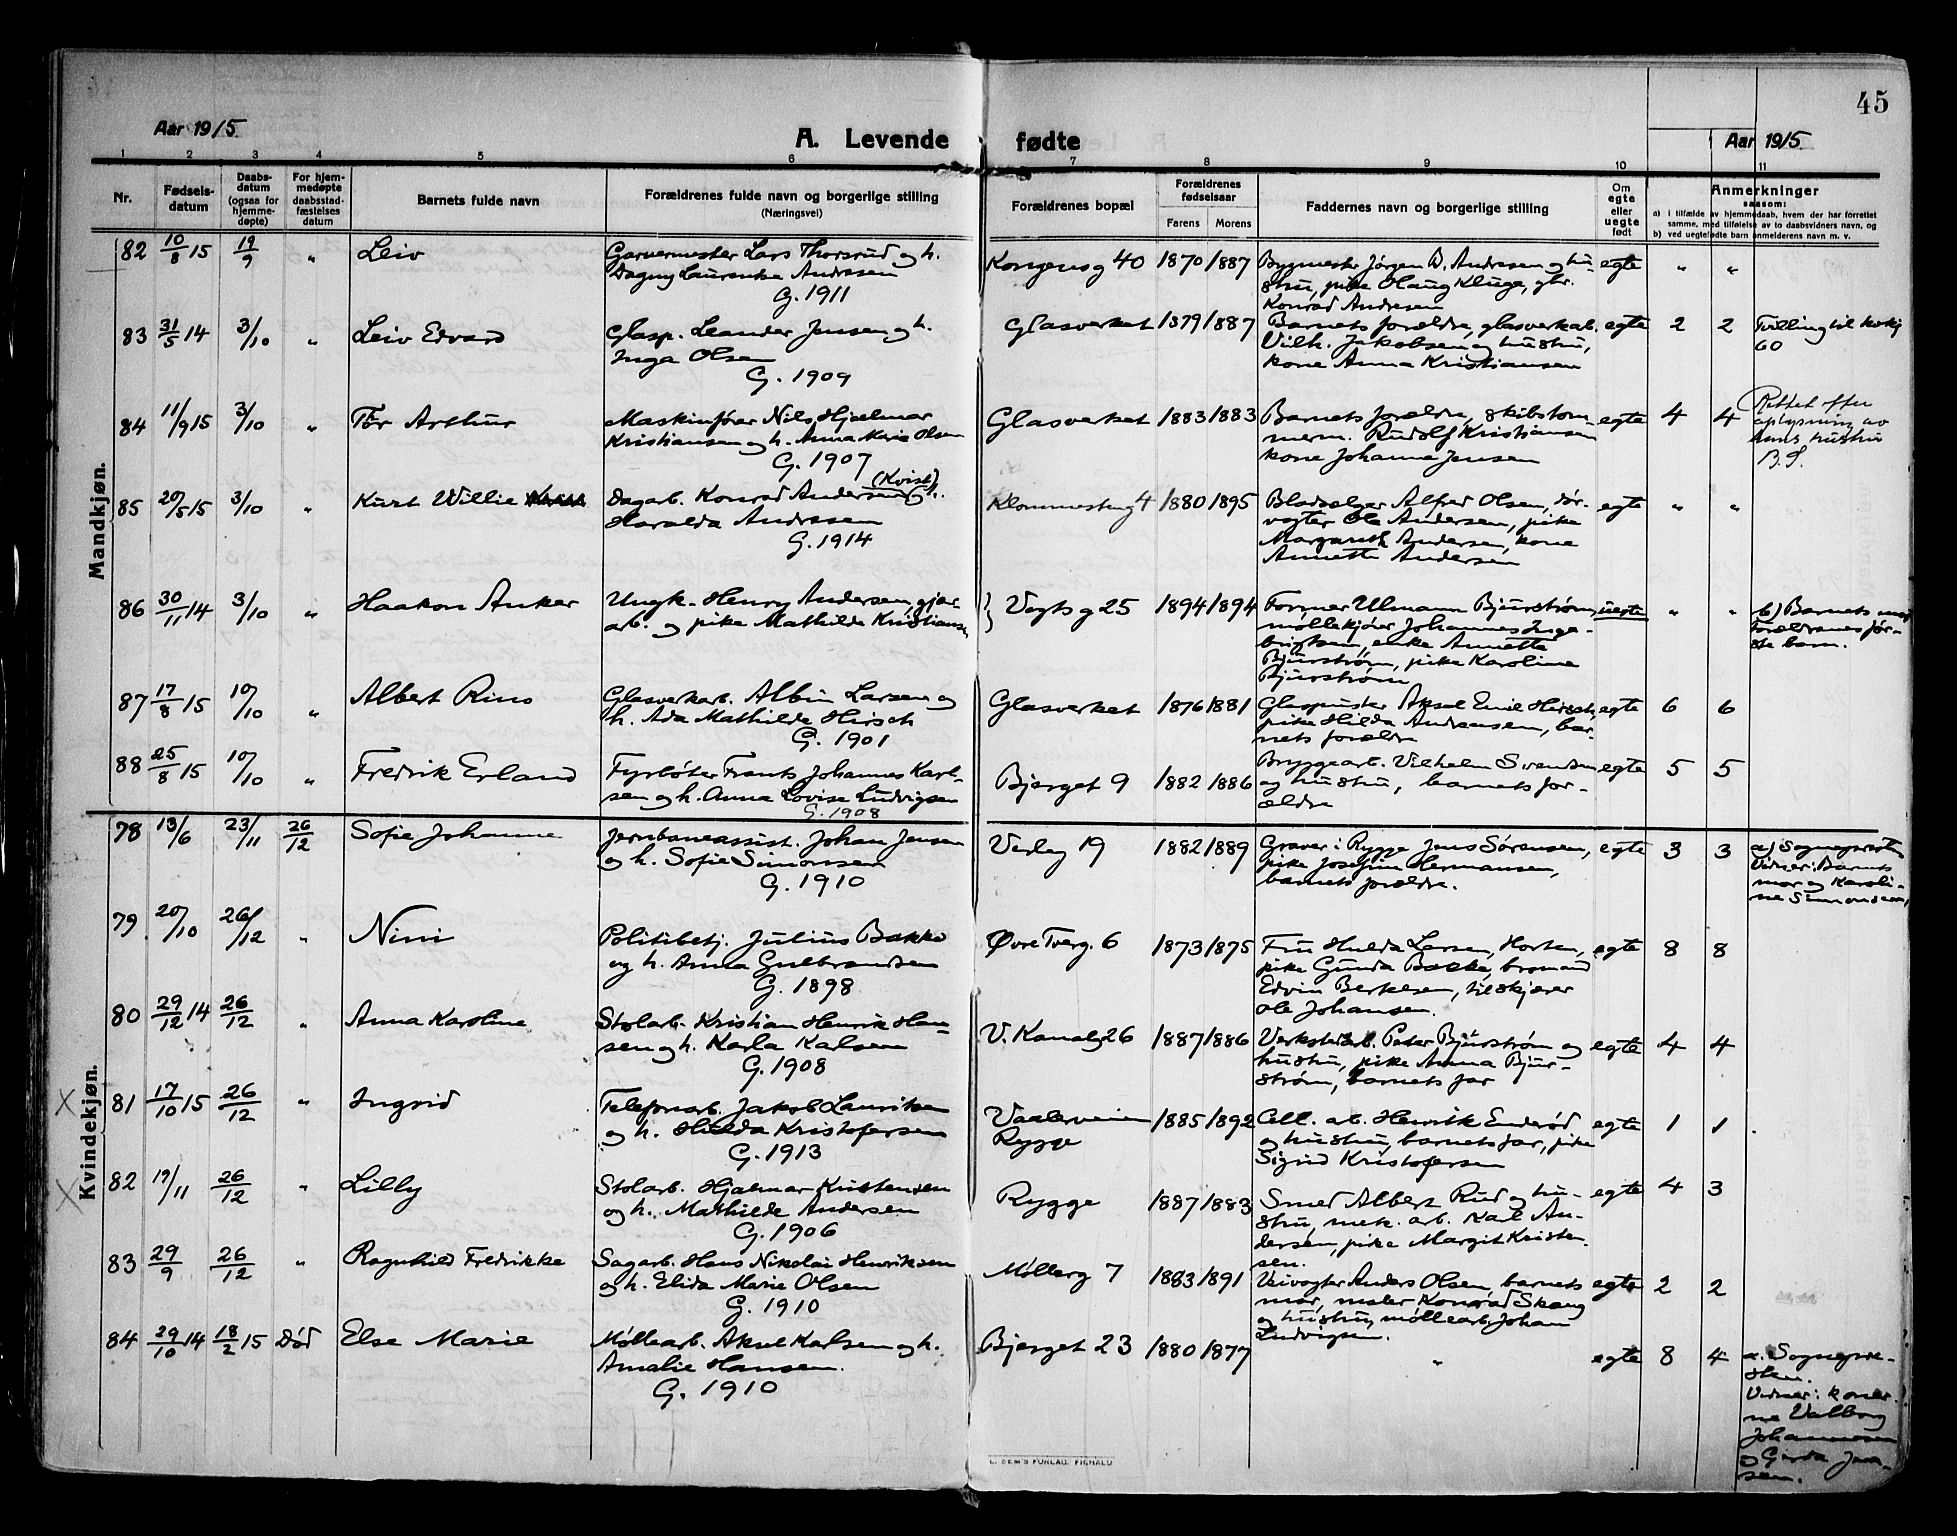 45
Aar 1915
A. Levende fødte
Aar 1915
1 2 3 4 5 6 7 8 9 10 11
Nr.
Fødsels-
datum
Daabs-
datum
(ogsaa for
hjemme-
døpte)
For hjem-
medøpte
daabsstad-
fæstelses
datum
Barnets fulde navn
Forældrenes fulde navn og borgerlige stilling
(Næringsvei)
Forældrenes bopæl
Forældrenes
fødselsaar
Farens Morens
Faddernes navn og borgerlige stilling
Om
egte
eller
uegte
født
Anmerkninger
saasom:
a) i tilfælde av hjemmedaab, hvem der har forrettet
samme, med tilføielse av to daabsvidners navn, og
b) ved uegtefødte barn anmelderens navn m. v.
Mandkjøn.
82 10/8 15 19/9 " Leiv
Garvermester Lars Thorsrud og h.
Dagny Laurentze Andresen
G. 1911
Kongensg 40 1870 1887
Bygmester Jørgen A. Andresen og hu-
stru, pike Olaug Kluge, gbr.
Konrad Andresen
egte " "
83 31/5 14 3/10 " Leiv Edvard
Glasp. Leander Jensen og h.
Inga Olsen
G. 1909
Glasverket 1879 1887
Barnets forældre, glasverkab.
Vilh. Jakobsen og hustru,
kone Anna Kristiansen
egte 2 2
Tvilling til kvkj
60
84 11/9 15 3/10 " Tor Arthur
Maskinfører Nils Hjalmar
Kristiansen og h. Anna Marie Olsen
G. 1907
Glasverket 1883 1883
Barnets forældre, skibstøm-
merm. Rudolf Kristiansen
kone Johanna Jensen
egte 4 4
Rettet efter
oplysning av
hans hustru
B.S.
85 20/5 15 3/10 " Kurt Willie
Dagarb. Konrad Andersen (Kvist) og h.
Haralda Andresen
G. 1914
Klommestng 4 1880 1895
Bladsælger Alfred Olsen, dør-
vogter Ole Andersen, pike
Margareth Andersen, kone
Annette Andersen
egte " "
86 30/11 14 3/10 " Haakon Anker
Ungk. Henry Andersen, gjør-
arb. og pike Mathilde Kristiansen
Vogtsg 25 1894 1894
Former Ulmann Bjurstrøm,
møllekjører Johannes Inge-
brigtsen, enke Annette
Bjurstrøm, pike Karoline
Bjurstrøm
uegte " "
b) Barnets mor
Forældrenes før-
ste barn.
87 17/8 15 10/10 " Albert Rino
Glasverkarb. Albin Larsen og
h. Ada Mathilde Hirsch
G. 1901
Glasverket 1876 1881
Glaspuster Aksel Emil Hirsch,
pike Hilda Andreasen, bar-
nets forældre
egte 6 6
88 25/8 15 10/10 " Fredrik Erland
Fyrbøter Frants Johannes Karl-
sen og h. Anna Lovise Ludvigsen
G. 1908
Bjerget 9 1882 1886
Bryggearb. Vilhelm Svendsen
og hustru, barnets for-
ældre
egte 5 5
Kvindekjøn.
78 13/6 23/11 26/12 Sofie Johanne
Jernbaneassist. Johan Jensen
og h. Sofie Simonsen
G. 1910
Verleg 19 1882 1889
Graver i Rygge Jens Sørensen,
pike Josefine Hermansen,
barnets forældre.
egte 3 3
a) Sognepresten
Vidner: Barnets
mor og Karoli-
ne Simonsen
79 20/10 26/12 " Nini
Politibetj. Julius Bakke
og h. Anna Gulbrandsen
G. 1898
Øvre Tverg. 6 1873 1875
Fru Hulda Larsen, Horten,
pike Gunda Bakke, bromand
Edvin Berkelsen, tilskjærer
Ole Johansen.
egte 8 8
80 29/12 14 26/12 " Anna Karoline
Stolarb. Kristian Henrik Han-
sen og h. Karla Karlsen
G. 1908
V. Kanalg 26 1887 1886
Verksteda. Peter Bjurstrøm og
hustru, pike Anna Bjur-
strøm, barnets far
egte 4 4
x 81 17/10 15 26/12 " Ingrid
Telefonarb. Jakob Lauritsen
og h. Hulda Kristofersen
G. 1913
Vaalerveien
Rygge
1885 1892
Cell. arb. Henrik Enderød
og hustru, barnets far, pike
Sigrid Kristofersen
egte 1 1
x 82 19/11 26/12 " Lilly
Stolarb. Hjalmar Kristensen
og h. Mathilde Andersen
G. 1906
Rygge 1887 1883
Smed Albert Rud og hu-
stru, mek. arb. Karl An-
dersen, pike Margit Kristen-
sen.
egte 4 3
83 29/9 26/12 " Ragnhild Fredrikke
Sagarb. Hans Nikolai Henriksen
og h. Elida Marie Olsen
G. 1910
Møllerg 7 1883 1891
Veivogter Anders Olsen, barnets
mor, maler Konrad Skaug
og hustru, møllearb. Johan
Ludvigsen.
egte 2 2
84 29/10 14 18/2 15 Død Else Marie
Møllearb. Aksel Karlsen og h.
Amalie Hansen.
G. 1910
Bjerget 23 1880 1877
"
egte 8 4
a. Sognepre-
sten.
Vidner: koner-
ne Valborg
Johannesen
og Gerda Jen-
sen.
E. SEM'S FORLAG, FR.HALD